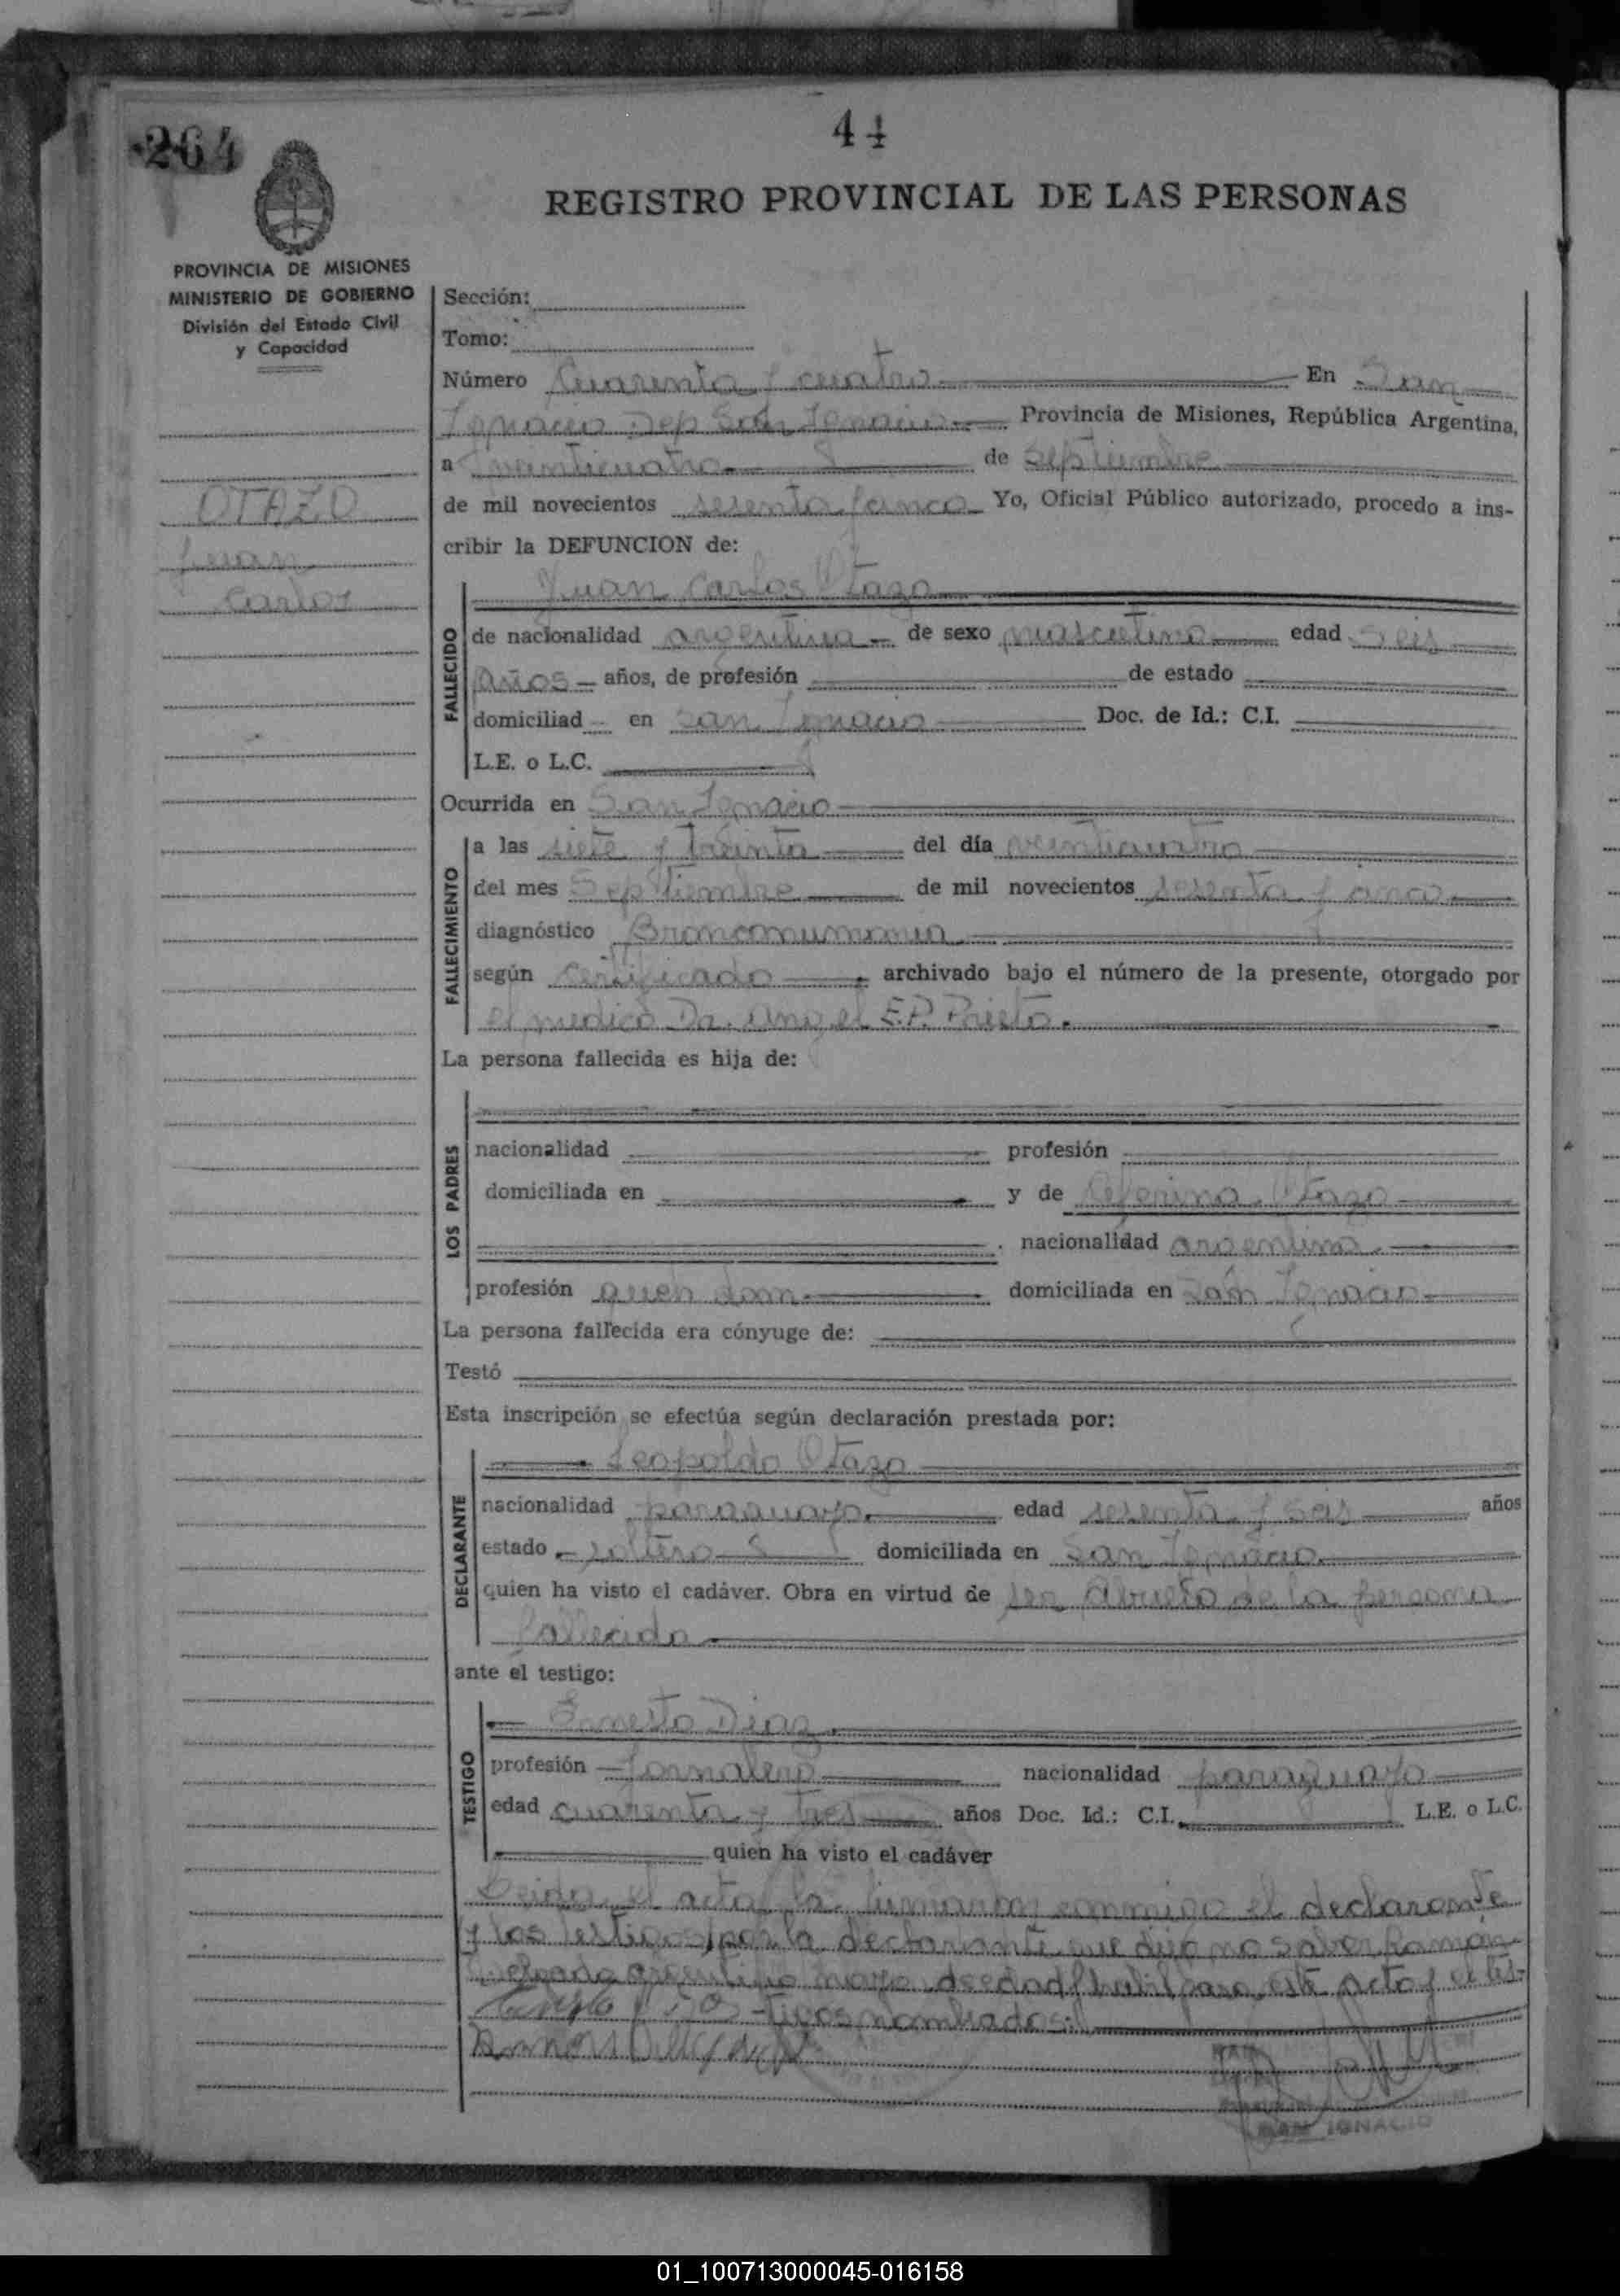 264
44
REGISTRO PROVINCIAL DE LAS PERSONAS
PROVINCIA DE MISIONES
MINISTERIO DE GOBIERNO
División del Estado Civil
y Capacidad
OTAZO
Juan
Carlos
Sección:
Tomo:
Número Cuarenta y cuatro En San
Ignacio Dep San Ignacio Provincia de Misiones, República Argentina,
a veinticuatro de Septiembre
de mil novecientos sesenta y cinco Yo, Oficial Público autorizado, procedo a ins-
cribir la DEFUNCION de:
Juan Carlos Otazo
FALLECIDO
de nacionalidad argentina de sexo masculino edad Seis
años años, de profesión de estado
domiciliad en San Ignacio Doc. de Id.: C.I.
L.E. o L.C.
Ocurrida en San Ignacio
FALLECIMIENTO
a las siete y treinta del día veinticuatro
del mes Septiembre de mil novecientos sesenta y cinco
diagnóstico
según Certificado archivado bajo el número de la presente, otorgado por
el medico Dr. Angel E.P. Prieto.
La persona fallecida es hija de:
LOS PADRES
nacionalidad profesión
domiciliada en y de Ceferina Otazo
nacionalidad argentina
profesión domiciliada en San Ignacio
La persona fallecida era cónyuge de:
Testó
Esta inscripción se efectúa según declaración prestada por:
DECLARANTE
Leopoldo Otazo
nacionalidad paraguayo edad sesenta y seis años
estado soltero domiciliada en San Ignacio
quien ha visto el cadáver. Obra en virtud de ser abuelo de la persona
fallecida
ante el testigo:
TESTIGO
Ernesto Diaz
profesión Jornalero nacionalidad paraguayo
edad cuarenta y tres años Doc. Id.: C.I. L.E. o L.C.
quien ha visto el cadáver
Leida el acta la firmaron conmigo el declarante
y los testigos por la declarante que dijo no saber Ramon
argentino mayor de edad habil para este acto y el tes-
tigos nombrados
SAN IGNACIO
01_100713000045-016158